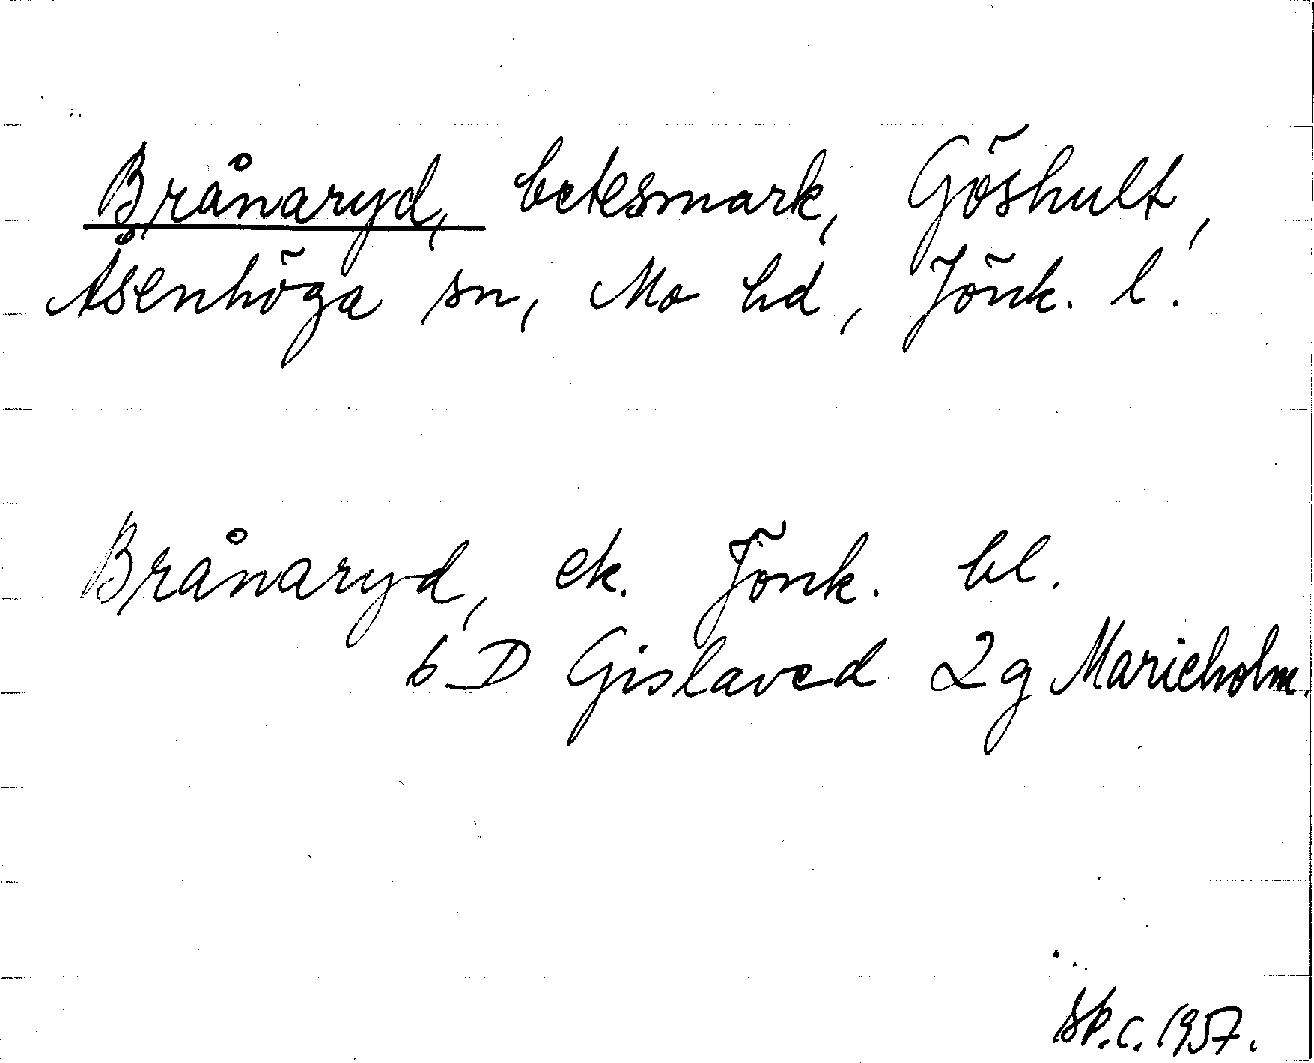 Brånaryd, betesmark, Göshult,
Åsenhöga sn, Mo hd, Jönk. l.
Brånaryd, ek. Jönk. bl.
6 D Gislaved 2g Marieholm.
1957.